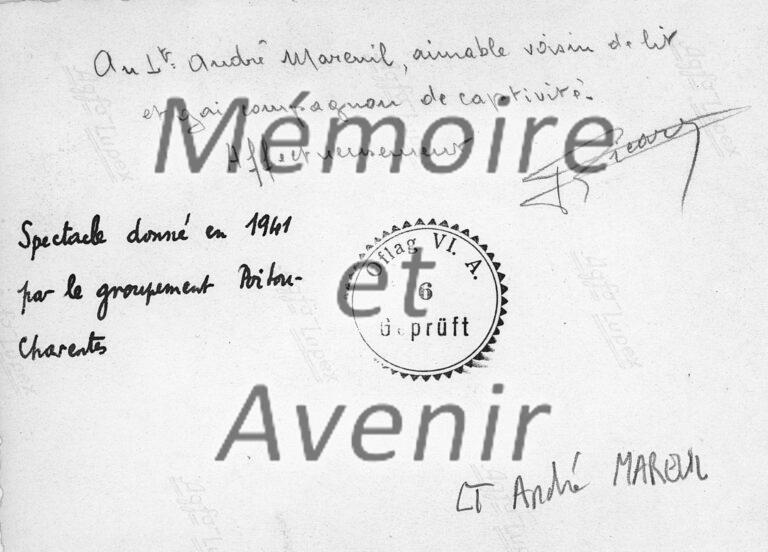 Au Lt. André Mareuil, aimable voisin de lit
et gai compagnon de captivité.
Affectueusement
Mémoire
Spectacle donné en 1941
par le groupement Poitou-
Charentes
Oflag VI. A.
6
Geprüft
et
Avenir
LT André MAREUIL
Agfa Lupex
Agfa Lupex
Agfa Lupex